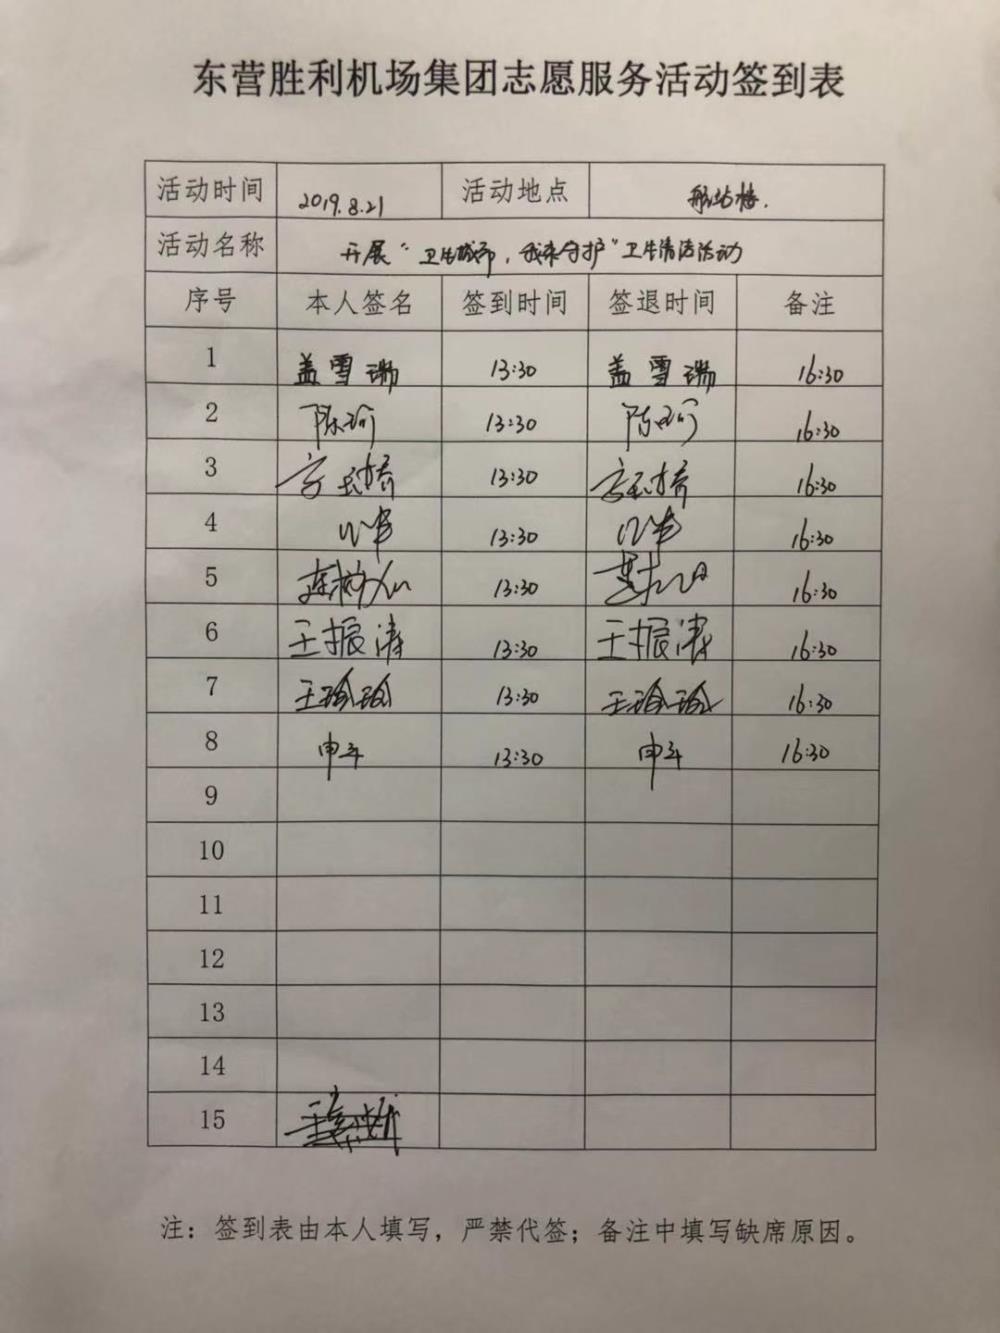 东营胜利机场集团志愿服务活动签到表
活动时间 2019.8.21 活动地点 航站楼.
活动名称 开展“卫生城市，我来守护”卫生清洁活动
序号 本人签名 签到时间 签退时间 备注
1 盖雪瑞 13:30 盖雪瑞 16:30
2 陈珂 13:30 陈珂 16:30
3 13:30 16:30
4 13:30 16:30
5 13:30 16:30
6 王振涛 13:30 王振涛 16:30
7 王瑜瑜 13:30 王瑜瑜 16:30
8 13:30 16:30
9
10
11
12
13
14
15
注：签到表由本人填写，严禁代签；备注中填写缺席原因。